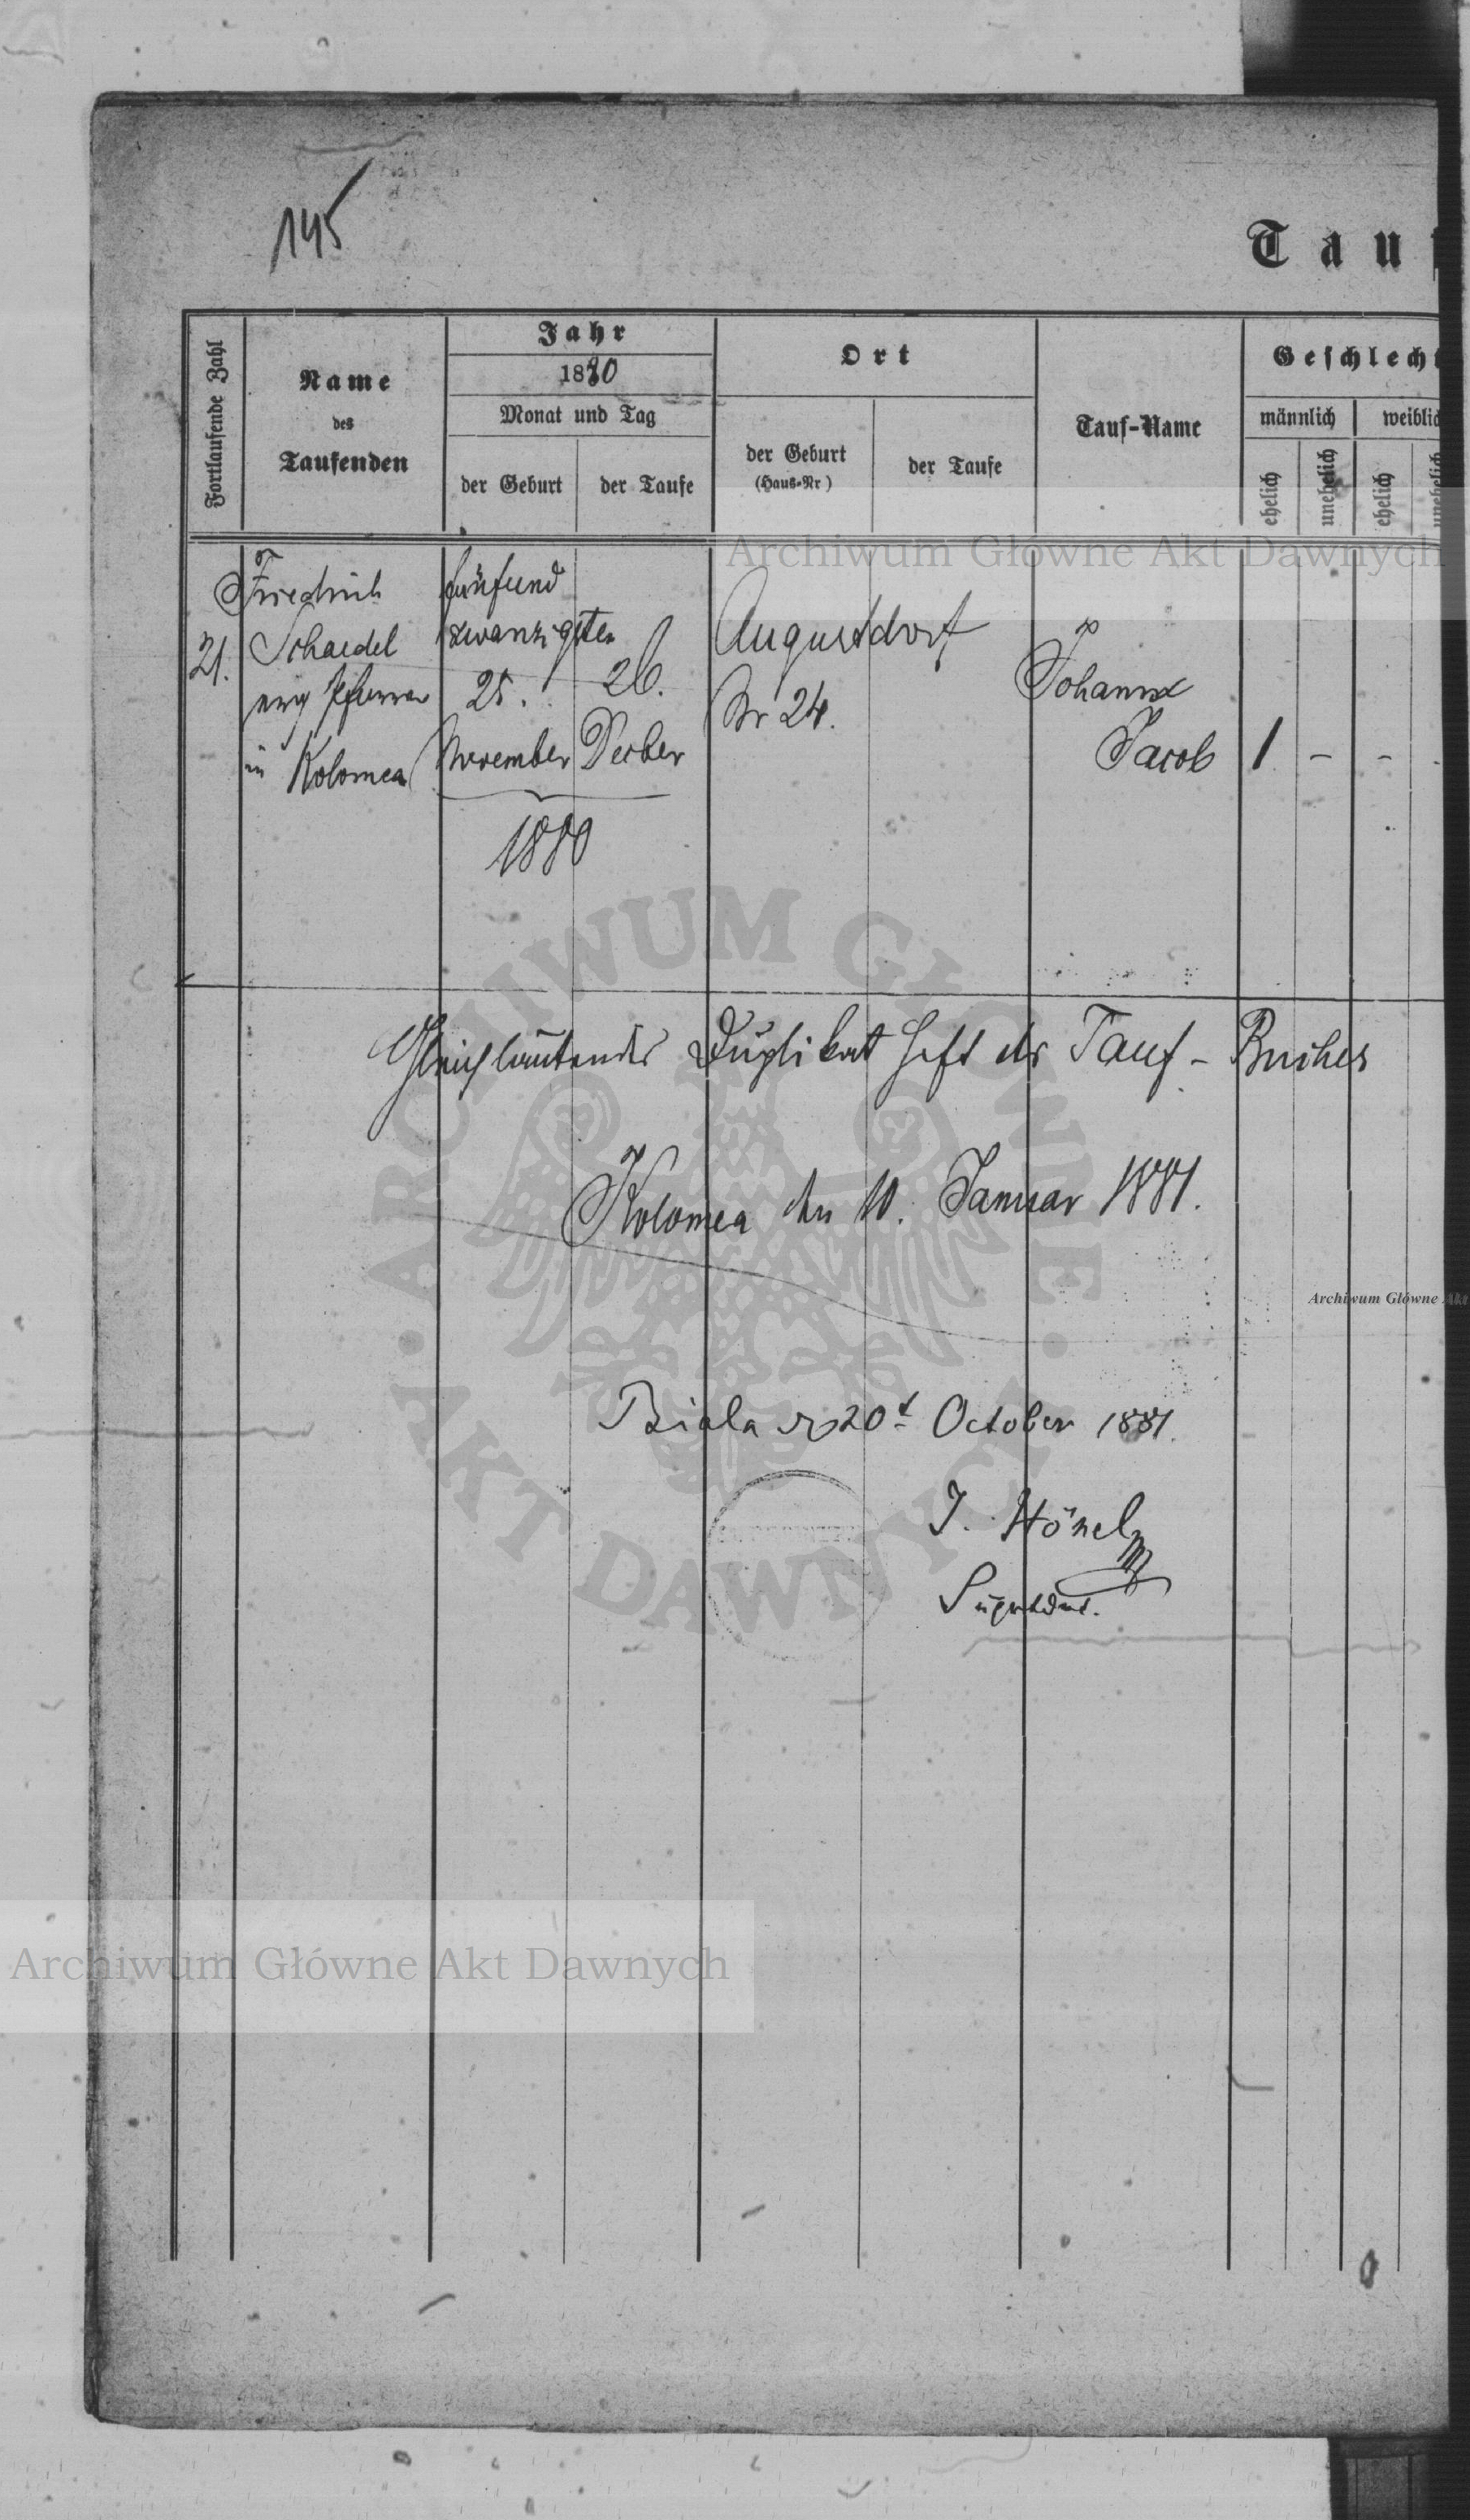 145
Tauf
Fortlaufende Zahl
Name
des
Taufenden
Jahr
1880
Monat und Tag
der Geburt
der Taufe
Ort
der Geburt
(Haus-Nr)
der Taufe
Tauf-Name
Geschlecht
männlich
weiblich
ehelich
unehelich
ehelich
unehelich
Archiwum Główne Akt Dawnych
21.
Friedrich
Schaedel
evg Pfarrer
in Kolomea
fünfund
zwanzigsten
25.
November
26.
Decber
1880
Augustdorf
Nr 24.
Johann
Jacob
1 - -
Gleichlautendes Duplikat Heft des Tauf - Buches
Kolomea den 10. Januar 1881.
Archiwum Główne Akt
Biala 20t October 1881.
J. Hönel
Supntdnt.
ARCHIWUM GŁÓWNE · AKT DAWNYCH ·
Archiwum Główne Akt Dawnych